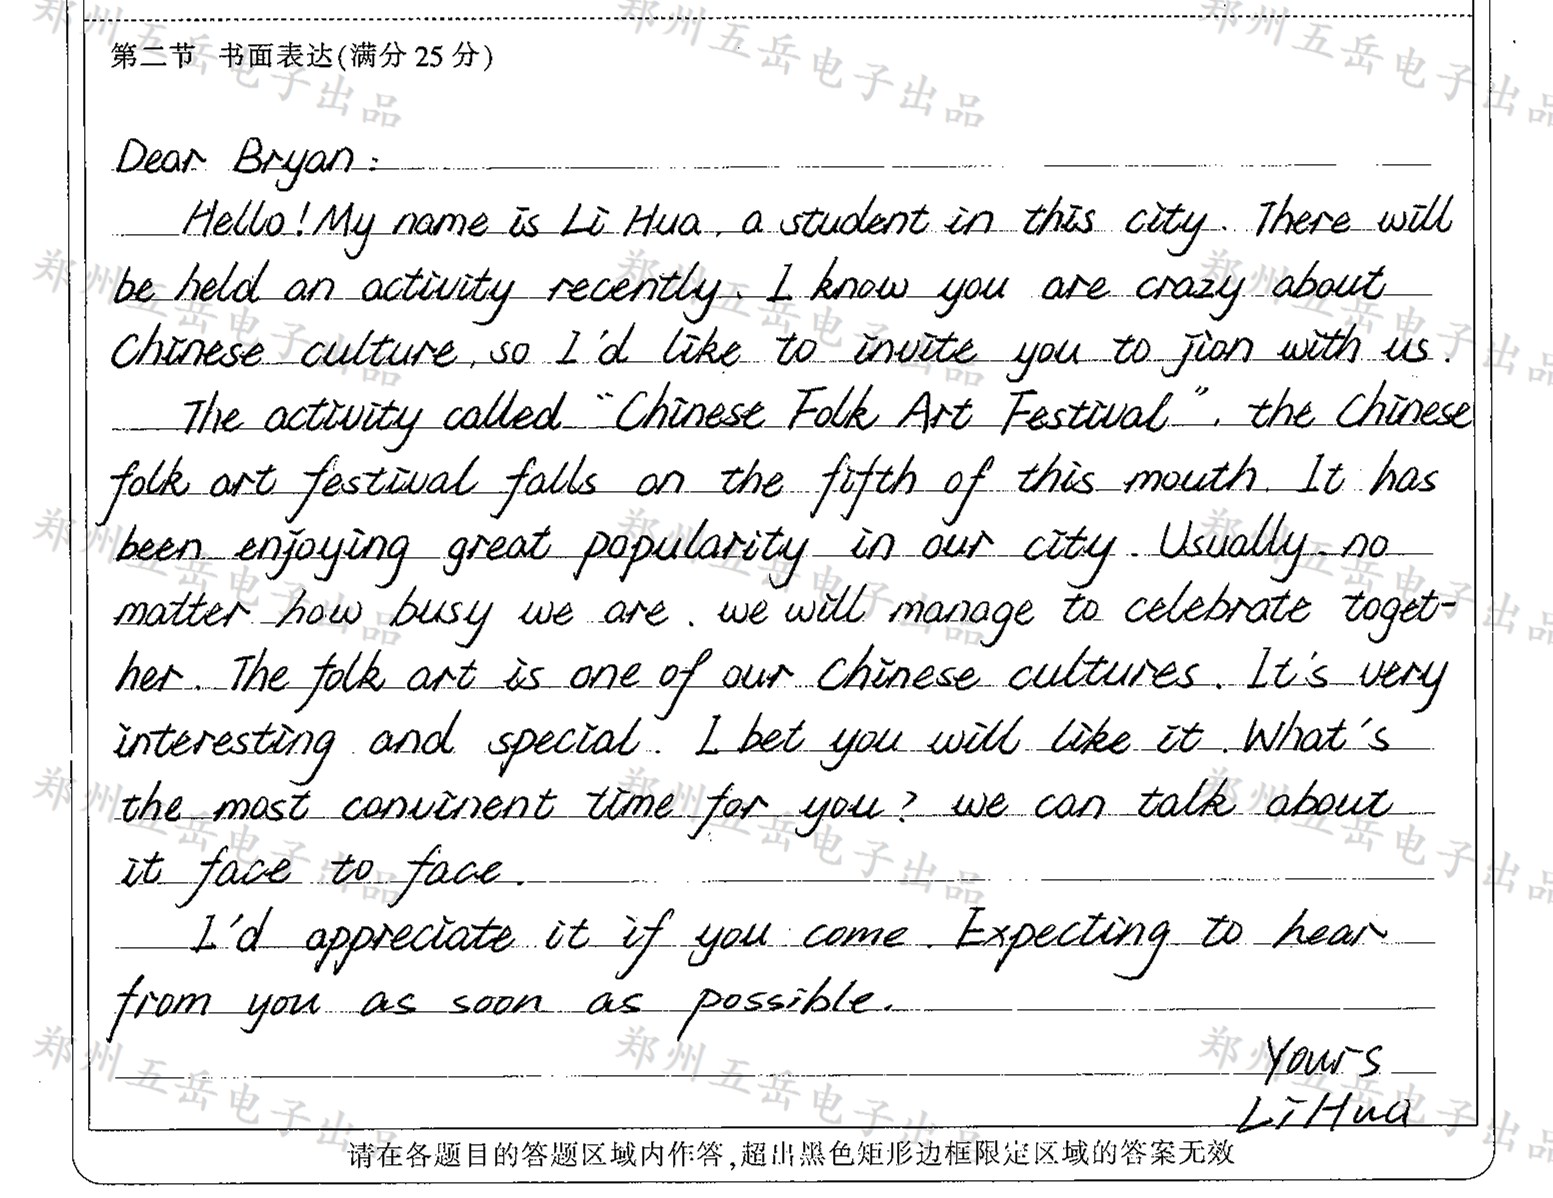 第二节 书面表达(满分25分)
Dear Bryan:
Hello! My name is Li Hua, a student in this city. There will
be held an activity recently. I know you are crazy about
Chinese culture, so I'd like to invite you to jion with us.
The activity called "Chinese Folk Art Festival", the Chinese
folk art festival falls on the fifth of this mouth. It has
been enjoying great popularity in our city. Usually, no
matter how busy we are, we will manage to celebrate toget-
her. The folk art is one of our Chinese cultures. It's very
interesting and special. I bet you will like it. What's
the most convinent time for you? we can talk about
it face to face.
I'd appreciate it if you come. Expecting to hear
from you as soon as possible.
Yours
Li Hua
请在各题目的答题区域内作答,超出黑色矩形边框限定区域的答案无效
郑州五岳电子出品